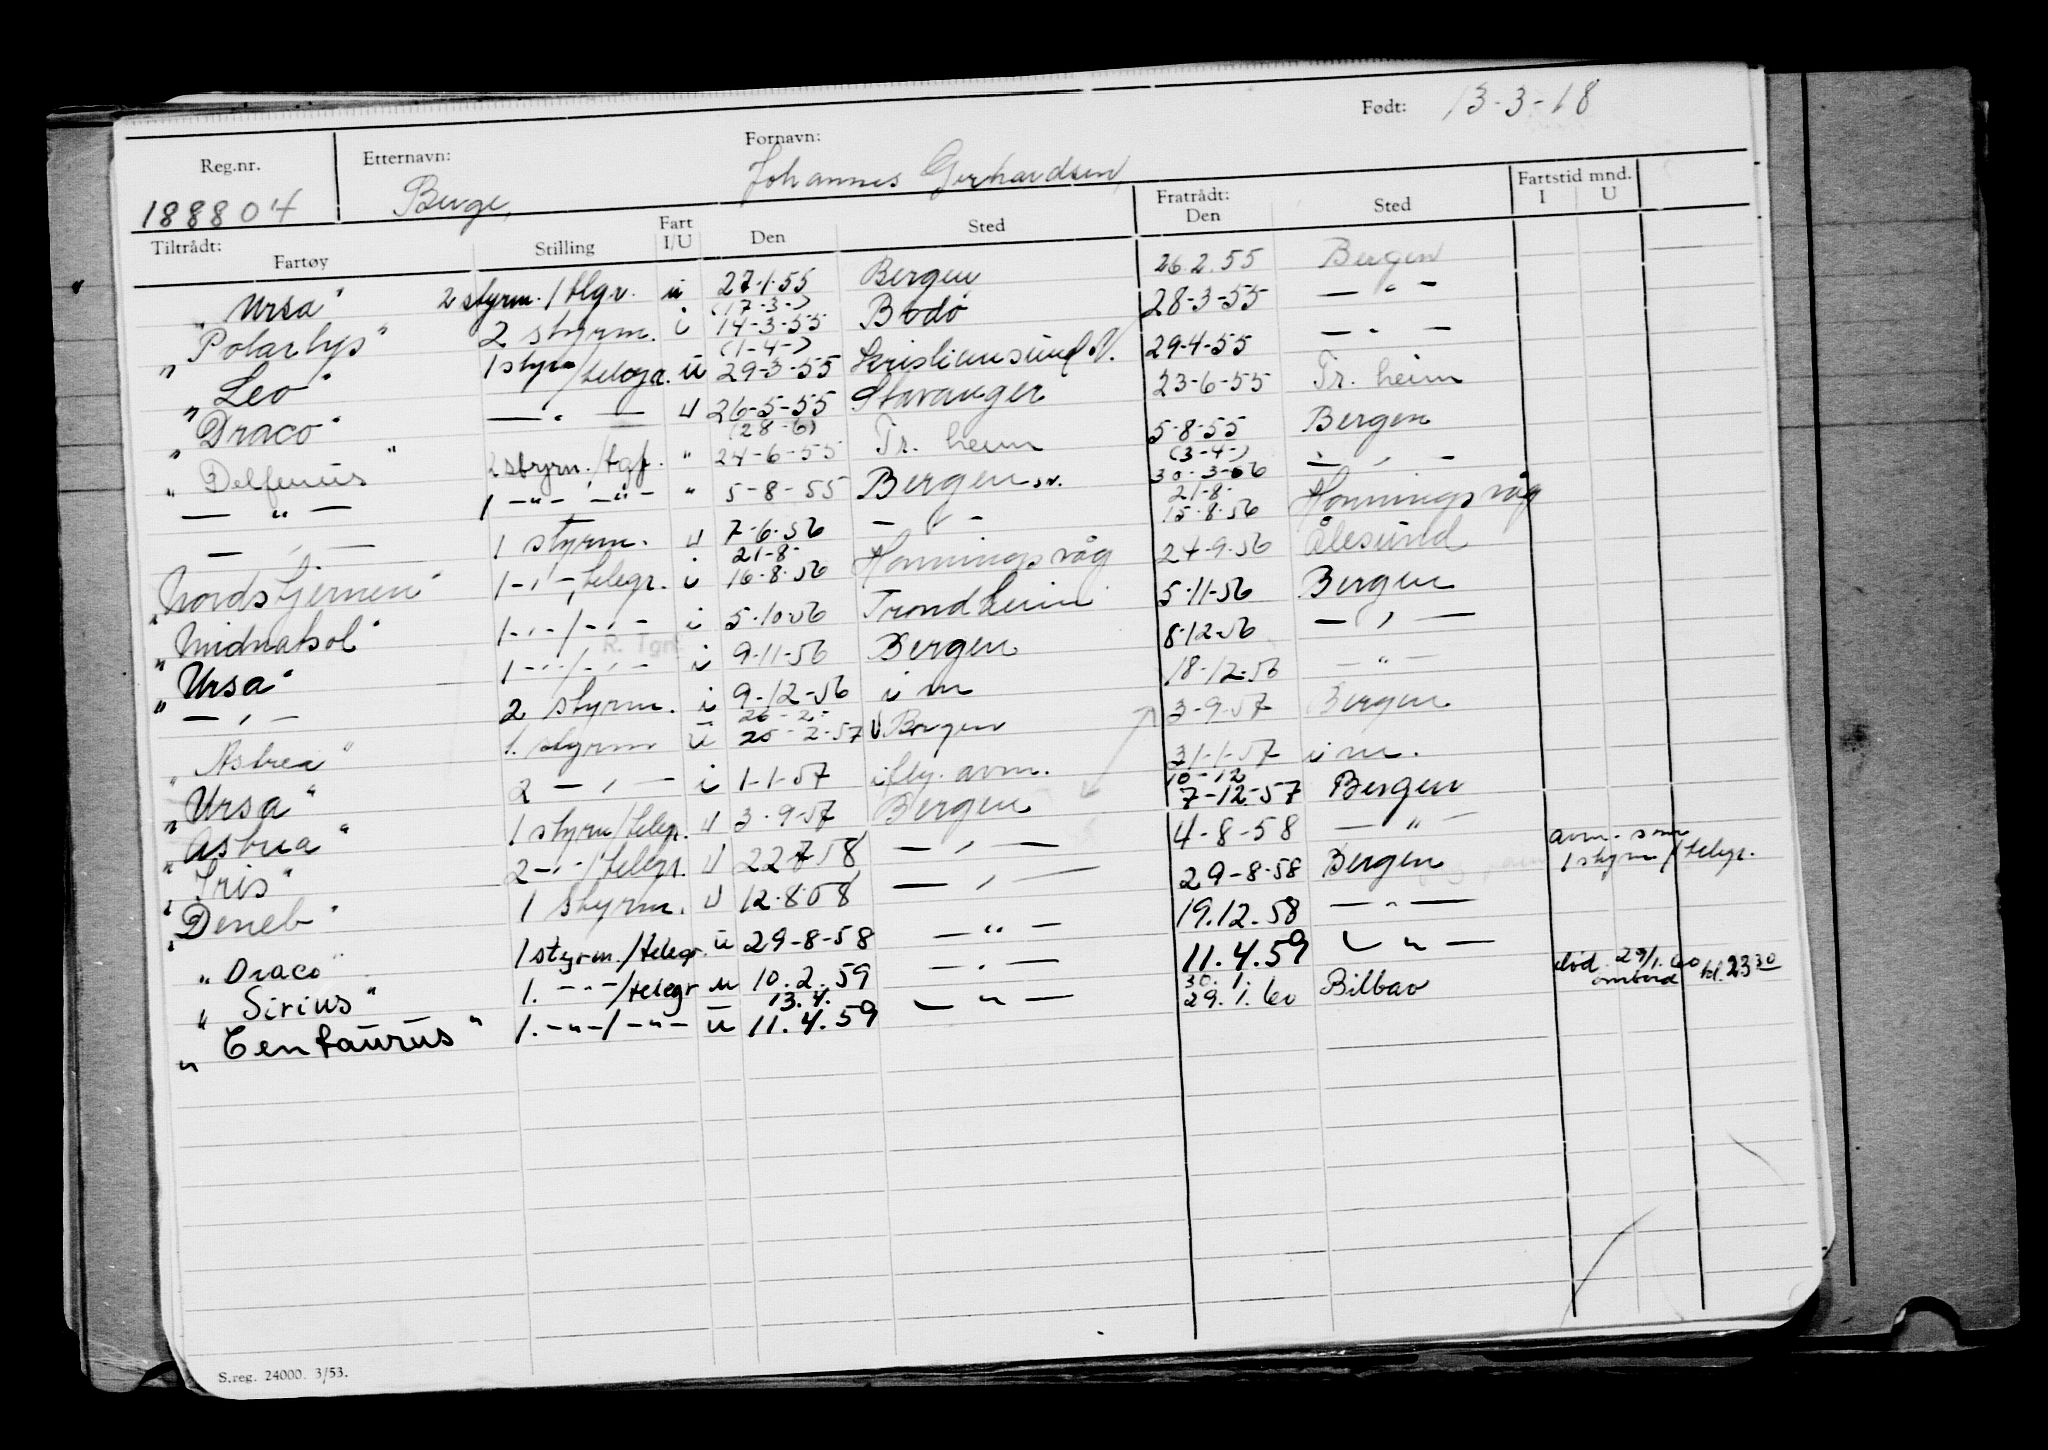 Reg.nr. Etternavn: Fornavn: Født: 13-3-18
188804 Berge, Johannes Gerhardsen,
Tiltrådt: Fartøy Stilling Fart I/U Den Sted Fratrådt: Den Sted Fartstid mnd. I U
"Ursa" 2 styrm./tlgr. u 27-1-55 Bergen 26.2.55 Bergen
"Polarlys" 2 styrm. i (17-3-) 14-3-55 Bodø 28-3-55 — " —
"Leo" 1 styrm/telegr. u (1-4-) 29-3-55 Kristiansund N. 29-4-55 — " —
"Draco" — " — u 26-5-55 Stavanger 23-6-55 Tr.heim
"Delfinus" 2 styrm./tgf. " (28-6) 24-6-55 Tr. heim 5-8-55 Bergen
— " — 1 — " — — " — " 5-8-55 Bergen (3-4-) 30-3-56 — " —
— " — 1 styrm. u 7-6-56 — " — 21-8- 15-8-56 Honningsvåg
"Nordstjernen" 1 — " — telegr. i 21-8- 16-8-56 Honningsvåg 24-9-56 Ålesund
"Midnatsol" 1 — " — / — " — i 5-10-56 Trondheim 5-11-56 Bergen
"Ursa" 1 — " — / — " — R. Tgrf i 9-11-56 Bergen 8-12-56 — " —
— " — 2 styrm. i 9-12-56 i m 18-12-56 — " —
"Astrea" 1. styrm u 26-2- 25-2-57 Bergen 3-9-57 Bergen
"Ursa" 2 — " — i 1-1-57 ifly. avm. 31-1-57 i m.
"Astrea" 1 styrm/telegr. u 3-9-57 Bergen 10-12 7-12-57 Bergen
"Iris" 2 — " — /telegr. u 22-7-58 — " — 4-8-58 — " —
"Deneb" 1 Styrm. u 12-8-58 — " — 29-8-58 Bergen avm. som 1 styrm/telegr.
"Draco" 1 styrm./telegr. u 29-8-58 — " — 19.12.58 — " —
"Sirius" 1. — " — /telegr u 10.2.59 — " — 11.4.59 — " —
"Centaurus" 1. — " — / — " — u 13.4. 11.4.59 — " — 30.1. 29.1.60 Bilbao død 29/1.60 ombord kl. 23 30
S.reg. 24000. 3/53.